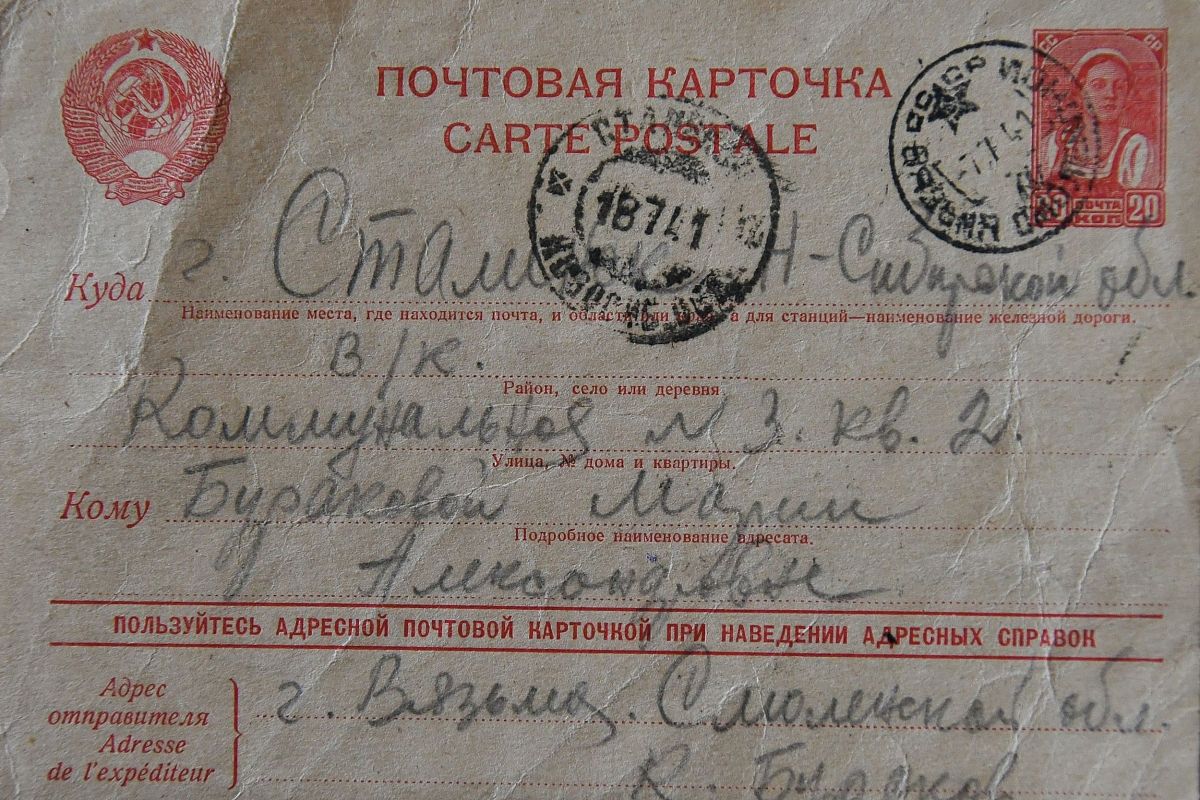 ПОЧТОВАЯ КАРТОЧКА
CARTE POSTALE
СС СР
20 ПОЧТА КОП 20
СССР 41
СТАЛИНСК
18 7 41
НОВОСИБ. ОБЛ.
Куда г. Сталинск Н-Сибирской обл.
Наименование места, где находится почта, и области или края, а для станций—наименование железной дороги.
в/к.
Район, село или деревня.
Коммунальная N 3. кв. 2.
Улица, № дома и квартиры.
Кому Бураковой Марии
Подробное наименование адресата.
Александровне
ПОЛЬЗУЙТЕСЬ АДРЕСНОЙ ПОЧТОВОЙ КАРТОЧКОЙ ПРИ НАВЕДЕНИИ АДРЕСНЫХ СПРАВОК
Адрес отправителя
Adresse de l'expéditeur
г. Вязьма. Смоленской обл.
К. Бураков